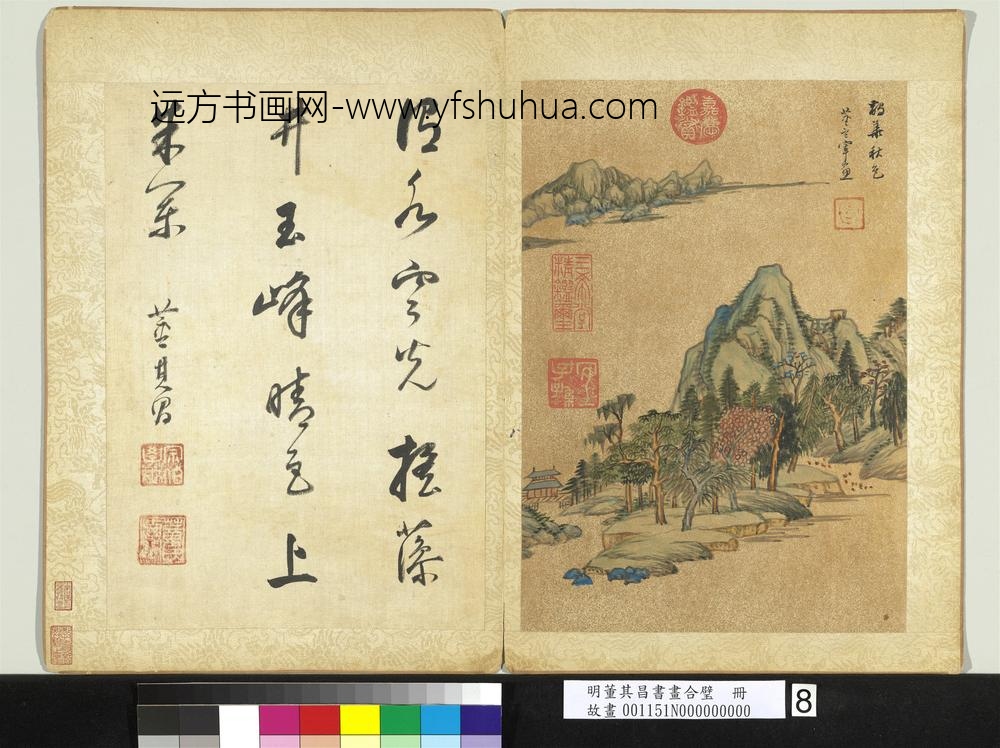 远方书画网-www.yfshuhua.com
鵲華秋色
董玄宰畫
嘉慶鑑賞
三希堂精鑑璽
宜子孫
渭水雲光搖藻
井玉峰晴色上
朱闌
董其昌
明董其昌書畫合璧 冊
故畫 001151N000000000
8